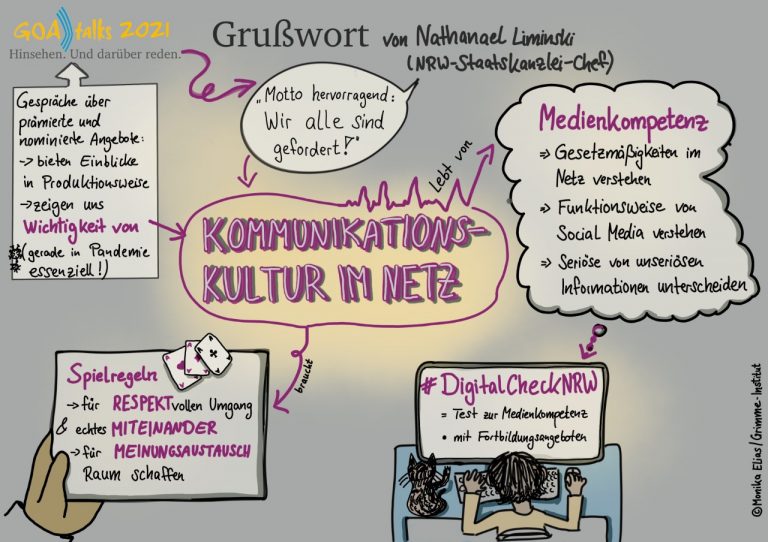 GOA talks 2021
Hinsehen. Und darüber reden.
Grußwort von Nathanael Liminski
(NRW-Staatskanzlei-Chef)
Gespräche über
prämierte und
nominierte Angebote:
→ bieten Einblicke
in Produktionsweise
→ zeigen uns
Wichtigkeit von
(gerade in Pandemie
essenziell!)
„Motto hervorragend:
Wir alle sind
gefordert!"
KOMMUNIKATIONS-
KULTUR IM NETZ
Lebt von
Medienkompetenz
⇒ Gesetzmäßigkeiten im
Netz verstehen
⇒ Funktionsweise von
Social Media verstehen
⇒ Seriöse von unseriösen
Informationen unterscheiden
braucht
Spielregeln
→ für RESPEKTvollen Umgang
& echtes MITEINANDER
→ für MEINUNGSAUSTAUSCH
Raum schaffen
A
A
A
#DigitalCheckNRW
= Test zur Medienkompetenz
• mit Fortbildungsangeboten
©Monika Elias/Grimme-Institut